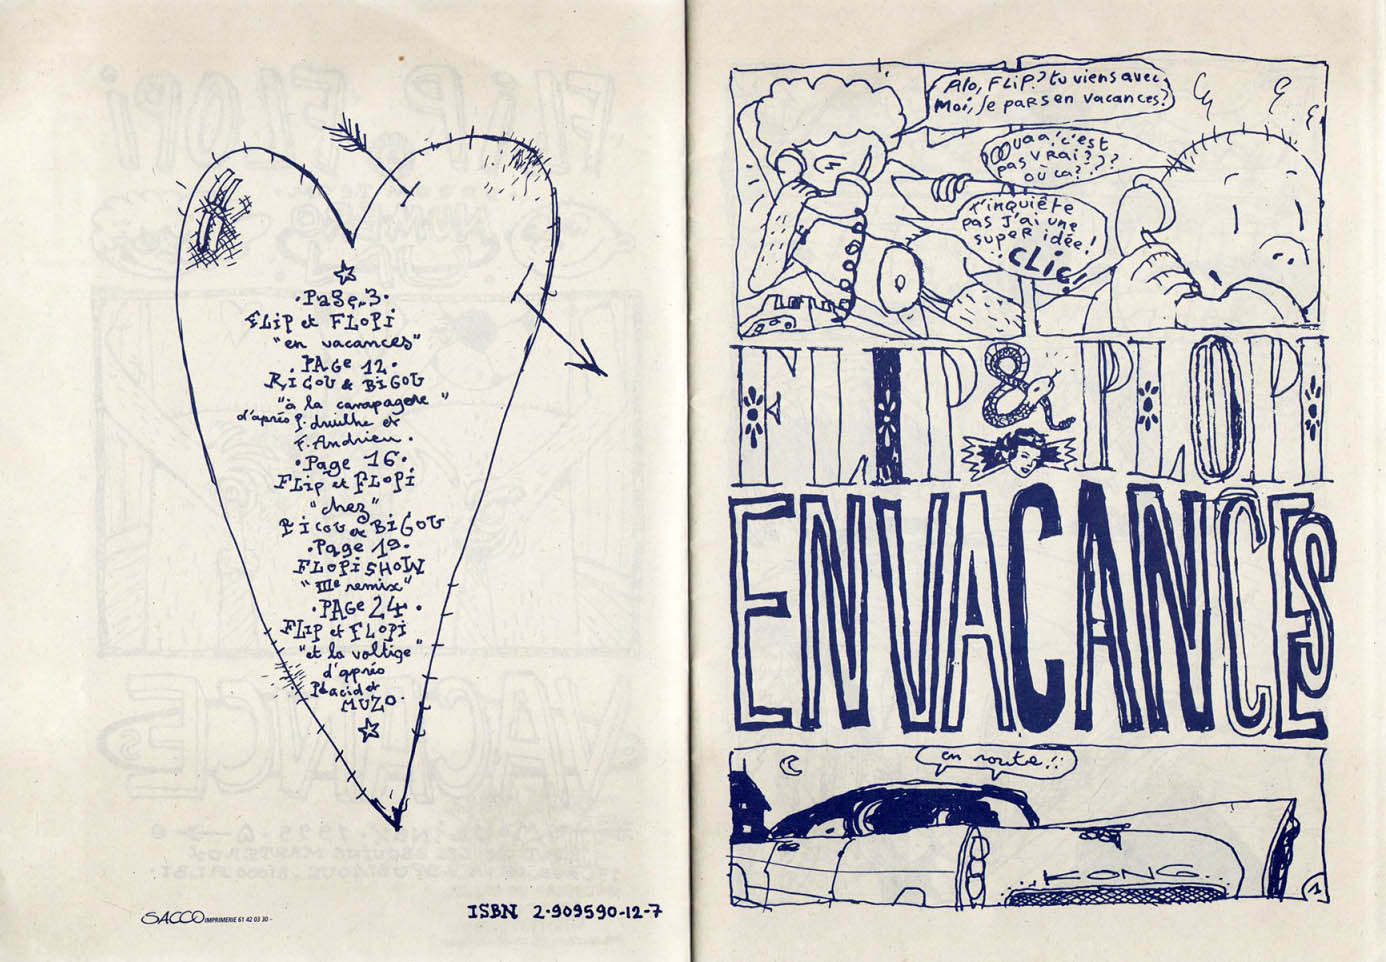 ·Page 3·
Flip et FLOPI
"en vacances"
·PAGE 12·
RICOU & BIGOU
"à la campagne"
d'après P. druilhe et
F. Andrieu.
·Page 16·
FLip et FLOPi
"chez"
RICOU & BIGOU
·Page 19·
FLOPiSHOW
"IIIe remix"
·PAGE 24·
FLip et FLOPI
"et la voltige"
d'après
Placid et
MUZO·
SACCO IMPRIMERIE 61 42 03 30 -
ISBN 2·909590-12-7
Alo, FLiP? tu viens avec
Moi, je pars en vacances?
OOUaa! c'est
pas vrai???
où ça?
T'inquiète
pas J'ai une
super idée!
CLic!
FLIP & PLOPI
EN VACANCES
en route!!
KONG
1